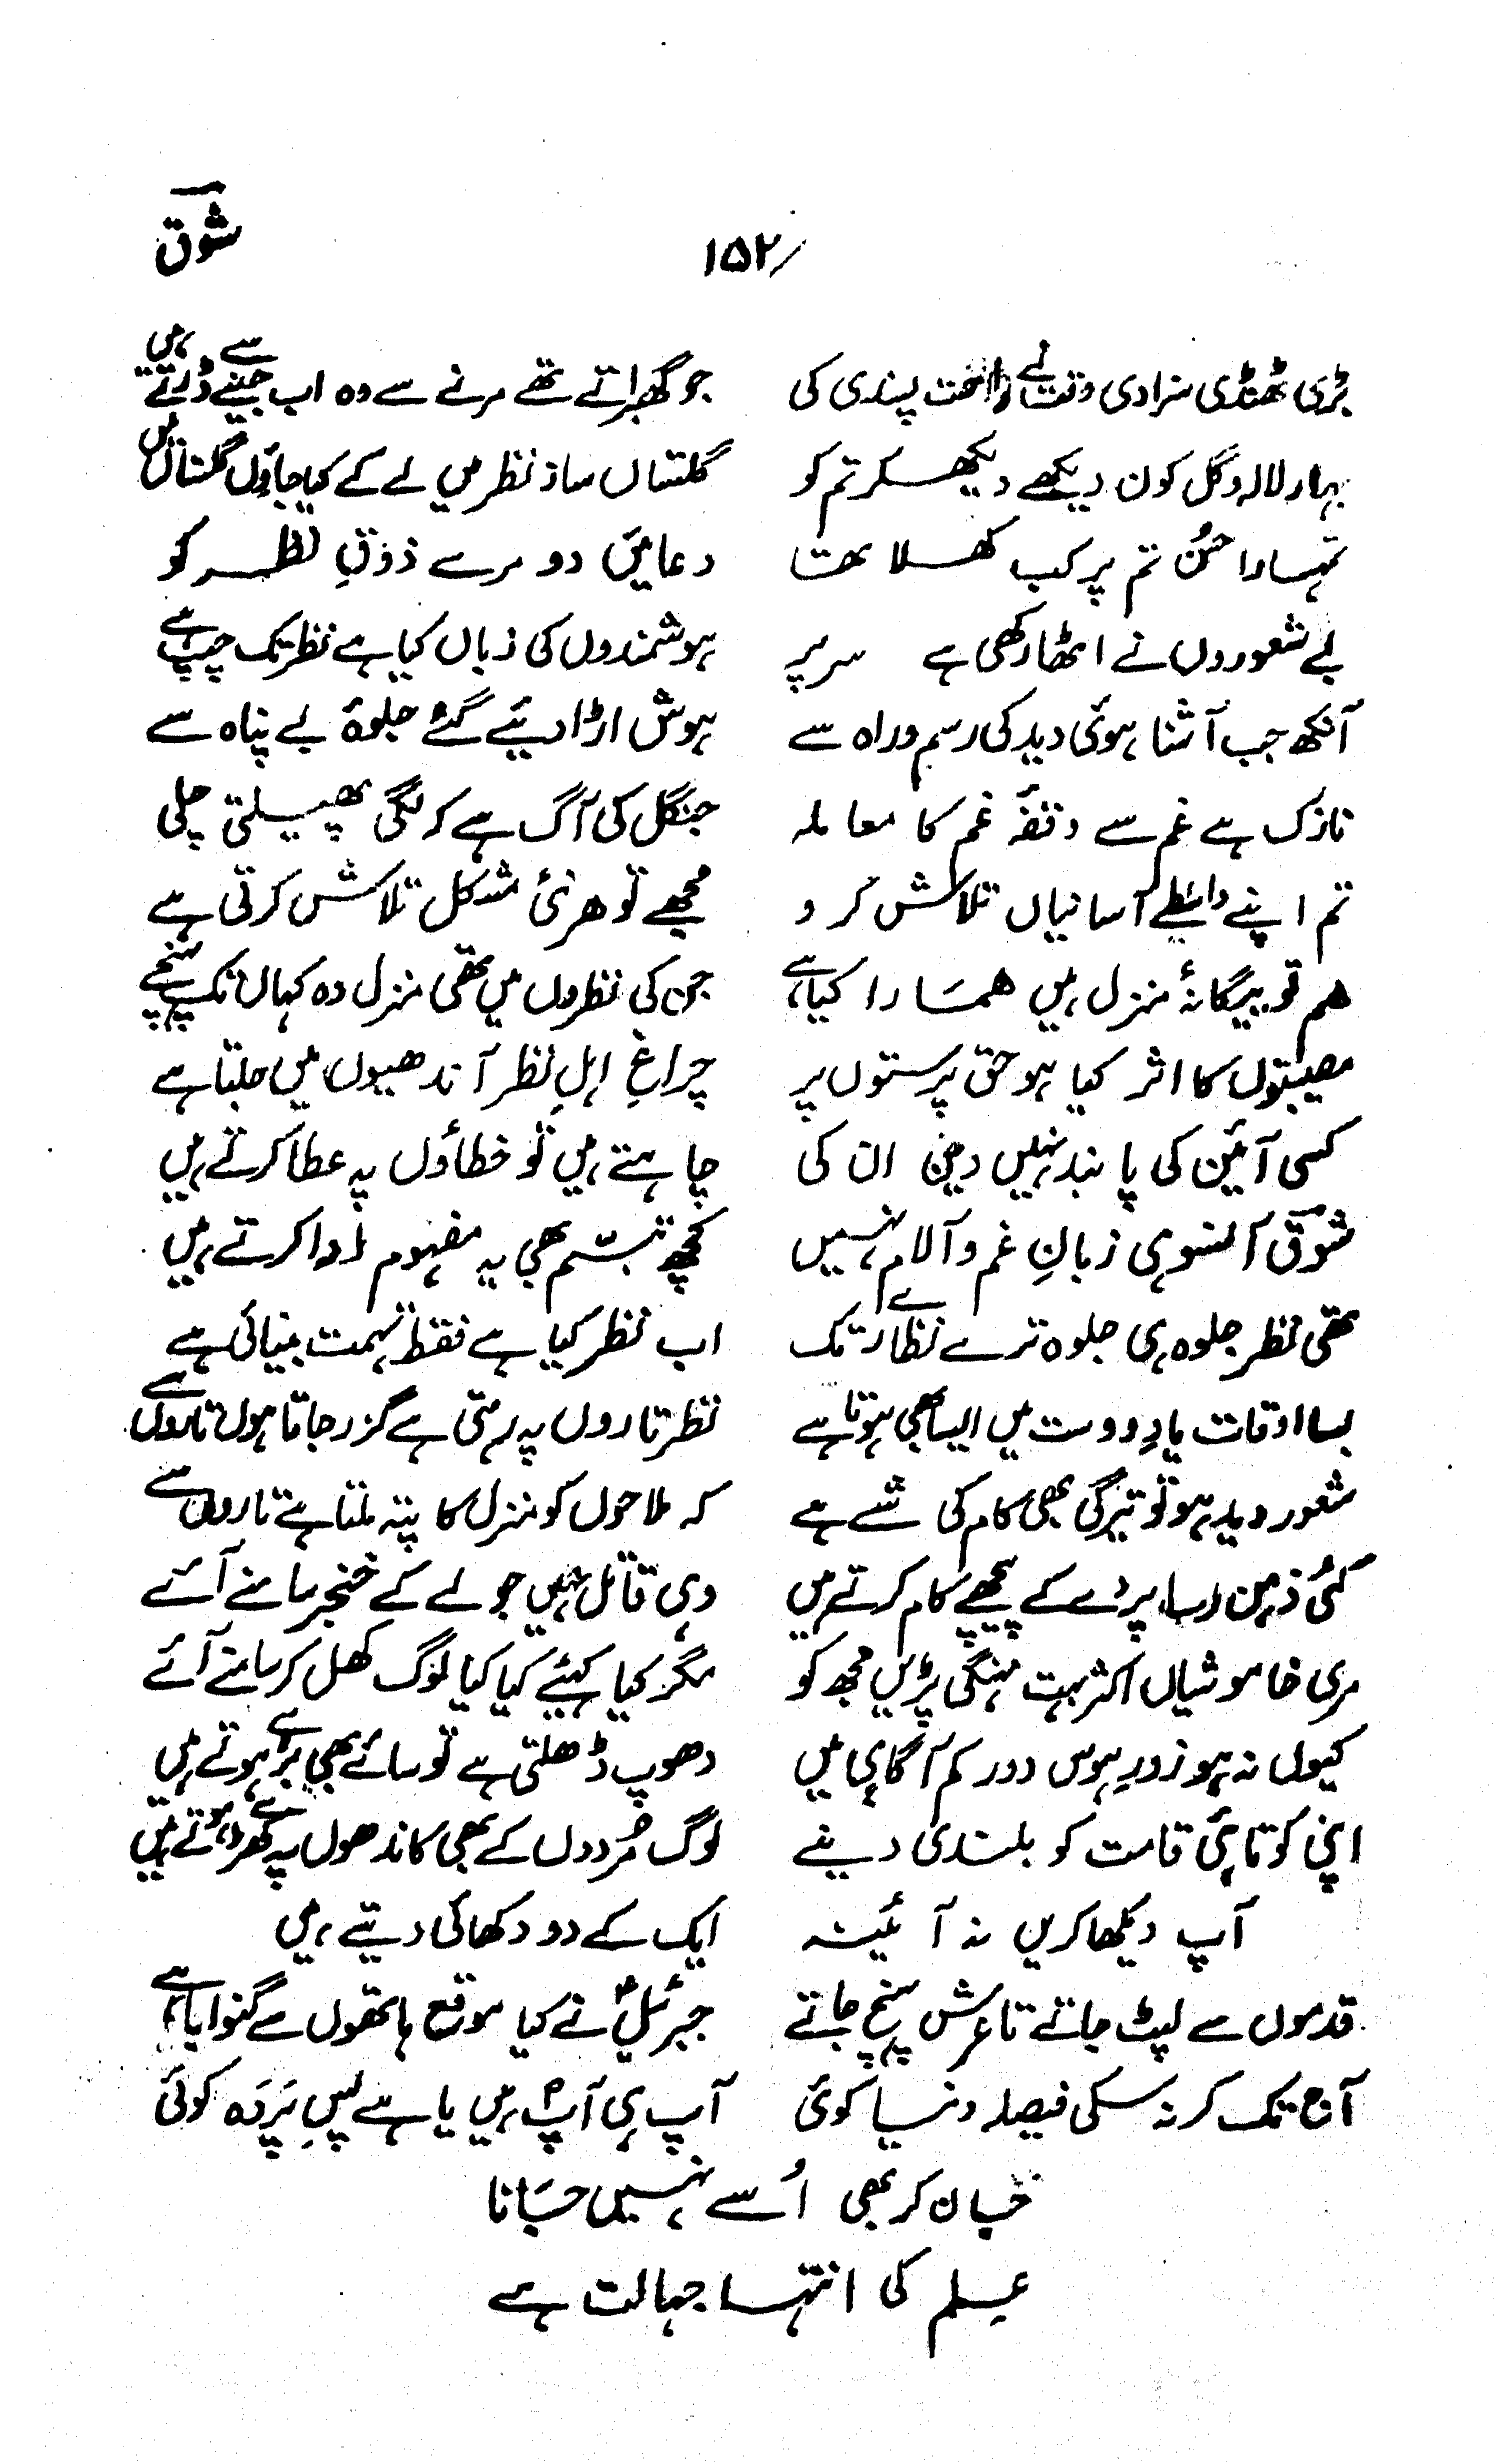 ۱۵۲/ شوق
بڑی ٹھنڈی سزا دی وقت نے راحت پسندی کی جو گھبراتے تھے مرنے سے وہ اب جینے سے ڈرتے ہیں
بہار لالہ و گل کون دیکھے دیکھ کر تم کو گلستاں ساز نظر میں لے کے کیا جاؤں گلستاں میں
تمہارا حسن تم پر کب کھلا تھا دعائیں دو مرے ذوقِ نظر کو
بے شعوروں نے اٹھا رکھی ہے سر پر ہوشمندوں کی زباں کیا ہے نظر تک چپ ہے
آنکھ جب آشنا ہوئی دید کی رسم و راہ سے ہوش اڑا دیئے گئے جلوۂ بے پناہ سے
نازک ہے غم سے وقفۂ غم کا معاملہ جنگل کی آگ ہے کہ لگی پھیلتی چلی
تم اپنے واسطے آسانیاں تلاش کرو مجھے تو ھر نئی مشکل تلاش کرتی ہے
ھم تو بیگانۂ منزل ہیں ھمارا کیا ہے جن کی نظروں میں تھی منزل وہ کہاں تک پہنچے
مصیبتوں کا اثر کیا ہو حق پرستوں پر چراغِ اہلِ نظر آندھیوں میں جلتا ہے
کسی آئین کی پابند نہیں دین ان کی چاہتے ہیں تو خطاؤں پہ عطا کرتے ہیں
شوق آنسو ہی زبانِ غم و آلام نہیں کچھ تبسّم بھی یہ مفہوم ادا کرتے ہیں
تھی نظر جلوہ ہی جلوہ ترے نظارے تک اب نظر کیا ہے فقط تہمت بینائی ہے
بسا اوقات یادِ دوست میں ایسا بھی ہوتا ہے نظر تاروں پہ رہتی ہے گزر جاتا ہوں تاروں سے
شعور دید ہو تو تیرگی بھی کام کی شے ہے کہ ملاحوں کو منزل کا پتہ ملتا ہے تاروں سے
کئی ذہن رسا پردے کے پیچھے کام کرتے ہیں وہی قاتل نہیں جو لے کے خنجر سامنے آئے
مری خاموشیاں اکثر بہت مہنگی پڑیں مجھ کو مگر کیا کہیئے کیا کیا لوگ کھل کر سامنے آئے
کیوں نہ ہو زورِ ہوس دور کم آگاہی میں دھوپ ڈھلتی ہے تو سائے بھی بڑے ہوتے ہیں
اپنی کوتاہئ قامت کو بلندی دینے لوگ مُردوں کے بھی کاندھوں پہ کھڑے ہوتے ہیں
آپ دیکھا کریں نہ آئینہ ایک کے دو دکھائی دیتے ہیں
قدموں سے لپٹ جاتے تا عرش پہنچ جاتے جبرئیلؑ نے کیا موقع ہاتھوں سے گنوایا ہے
آج تک کر نہ سکی فیصلہ دنیا کوئی آپ ہی آپؐ ہیں یا ہے پسِ پَردَہ کوئی
جان کر بھی اُسے نہیں جَانا
علم کی انتہا جہالت ہے